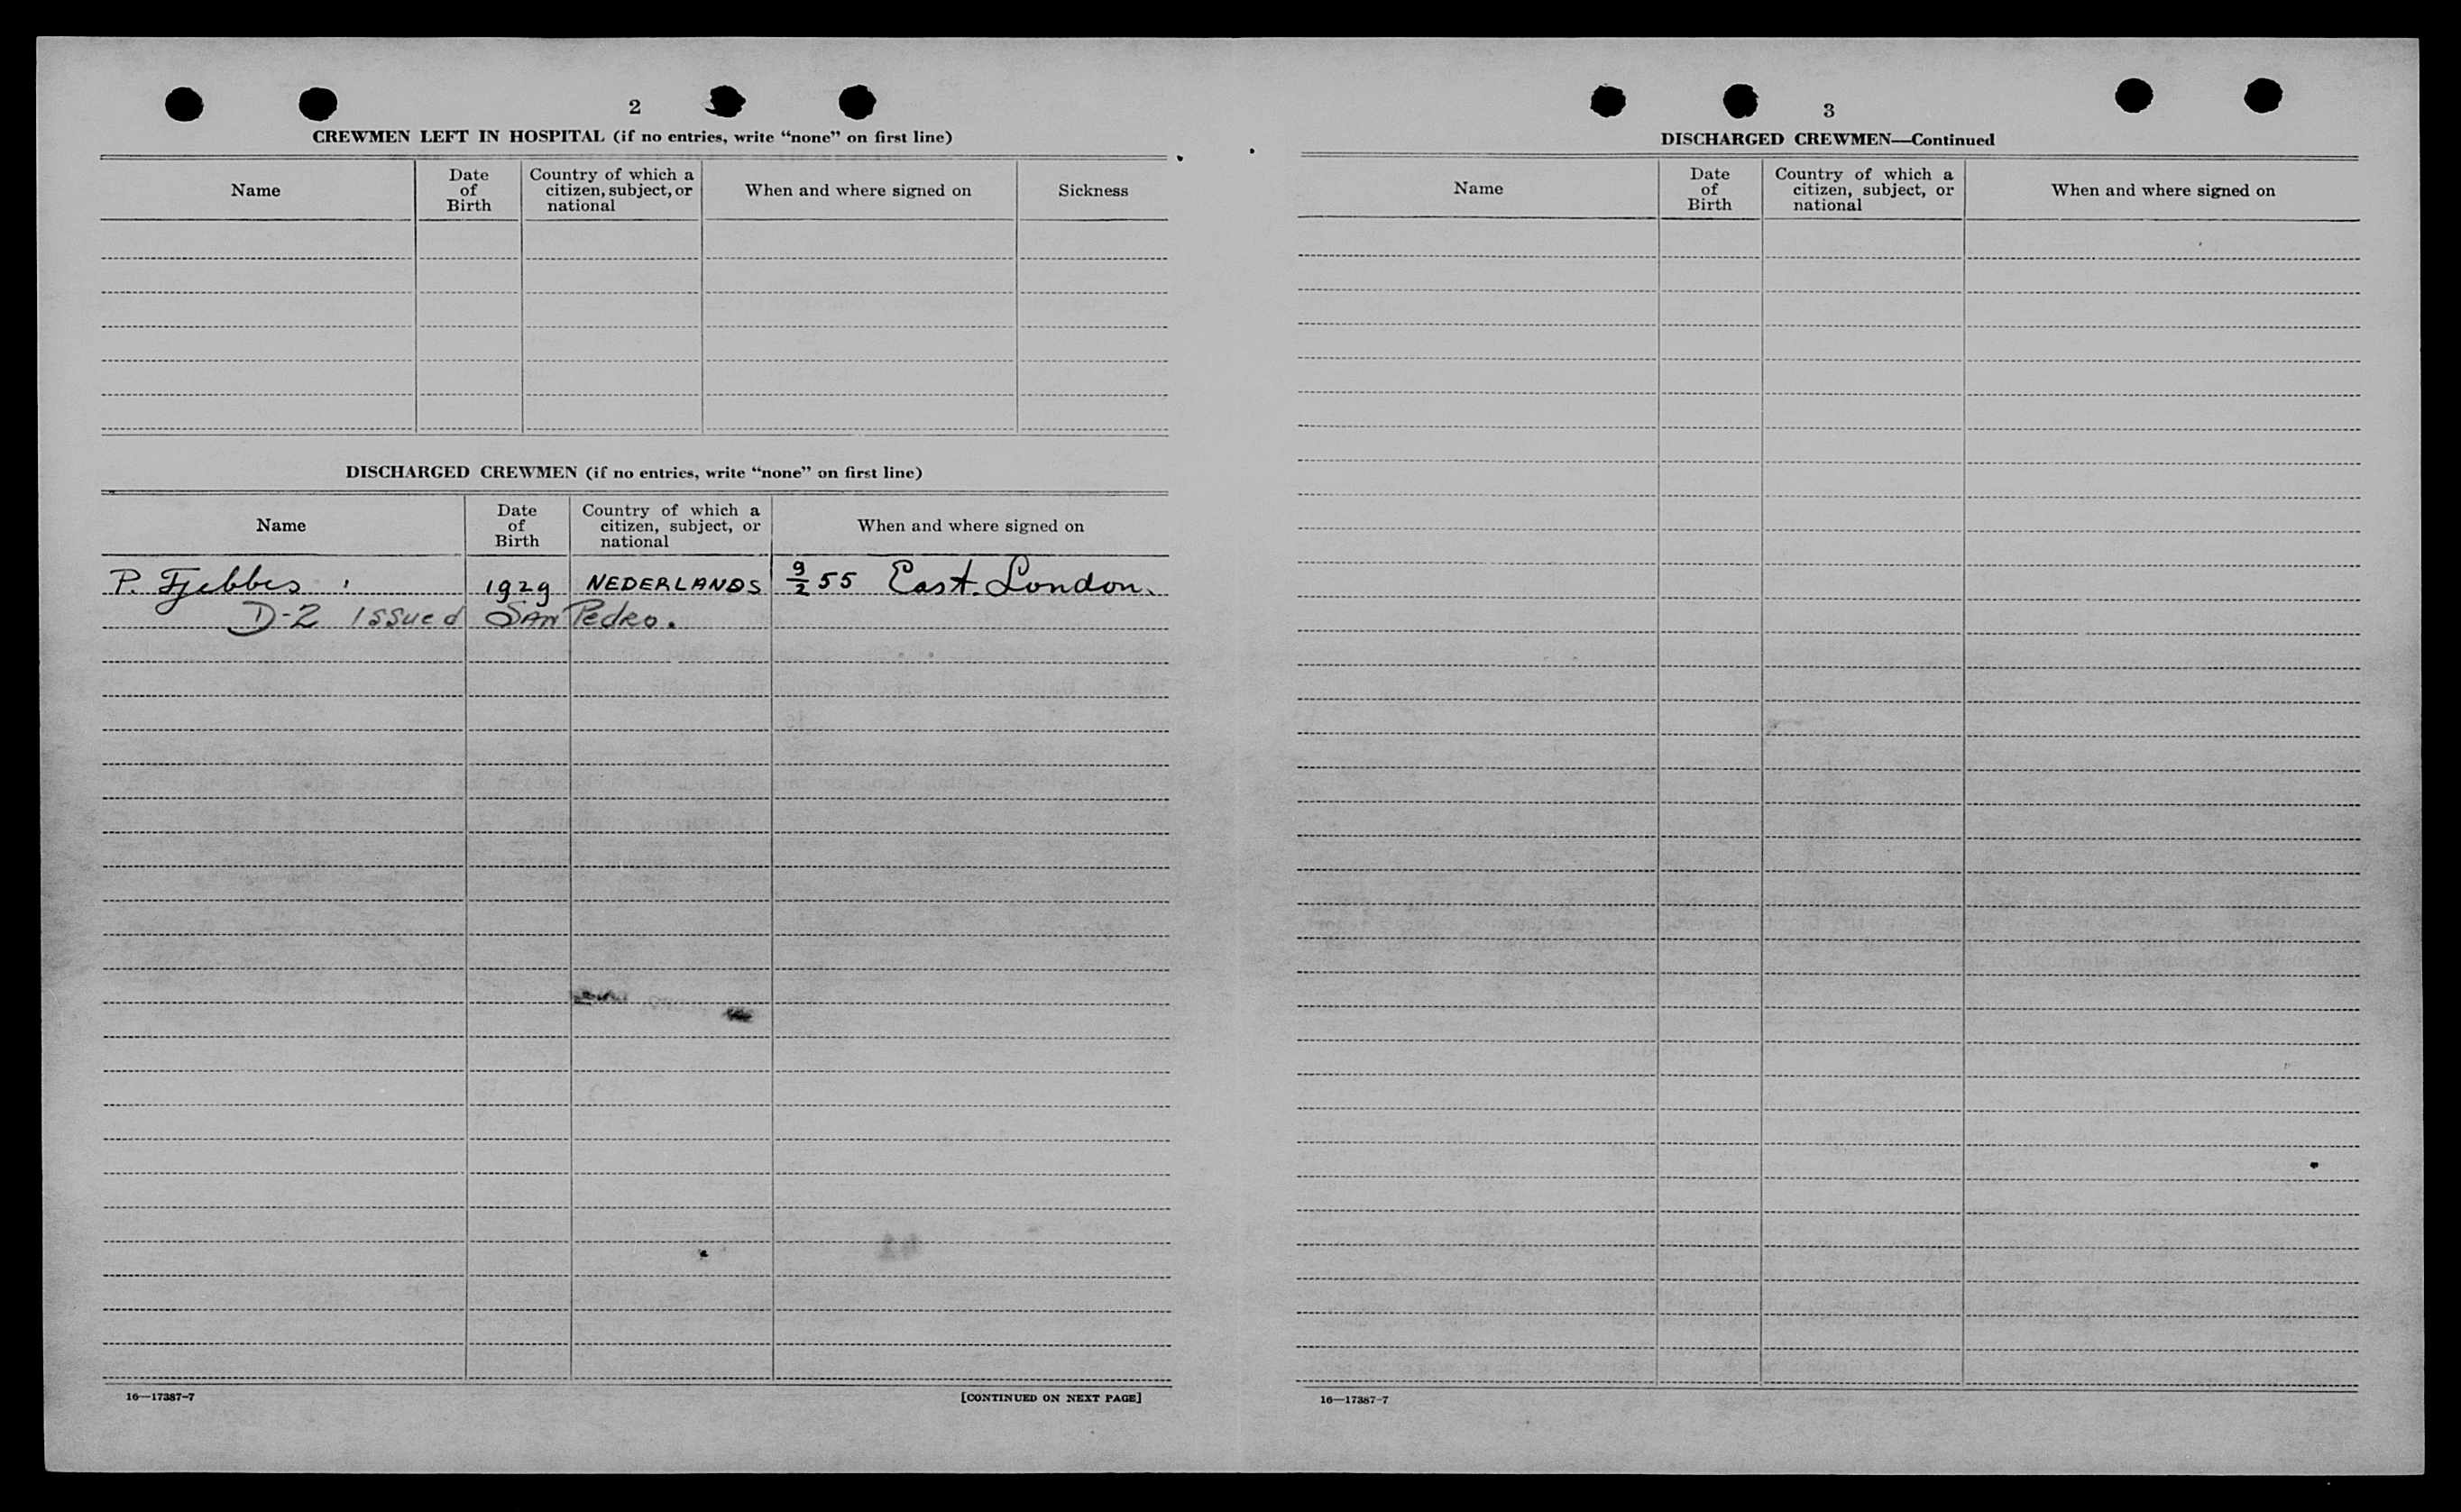 2
CREWMEN LEFT IN HOSPITAL (if no entries, write “none” on first line)
Name
Date of Birth
Country of which a citizen, subject, or national
When and where signed on
Sickness
DISCHARGED CREWMEN (if no entries, write “none” on first line)
Name
Date of Birth
Country of which a citizen, subject, or national
When and where signed on
P. Tjebbes 1929 NEDERLANDS 9/2 55 East. London.
D-2 Issued San Pedro.
16—17387-7
[CONTINUED ON NEXT PAGE]
3
DISCHARGED CREWMEN—Continued
Name
Date of Birth
Country of which a citizen, subject, or national
When and where signed on
16—17387-7